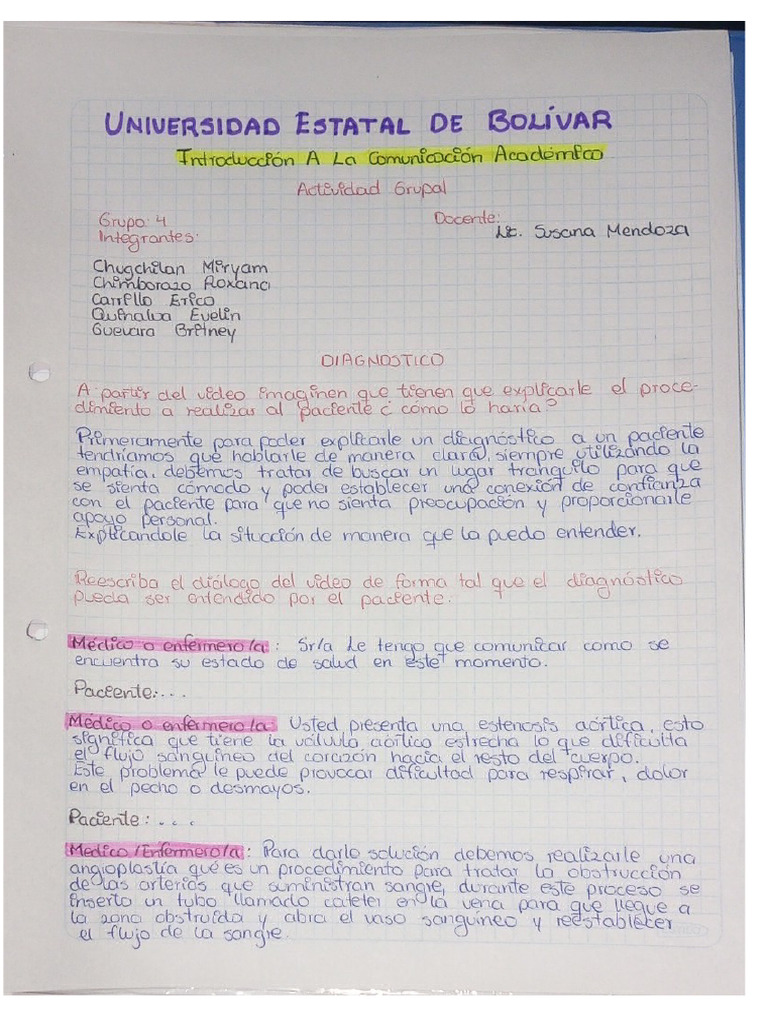 UNIVERSIDAD ESTATAL DE BOLÍVAR
Introducción A La Comunicación Académico
Actividad Grupal
Grupo: 4
Docente:
Integrantes:
Lic. Susana Mendoza
Chugchilan Miryam
Chimborazo Roxana
Carrillo Erico
Quinalua Evelin
Guevara Britney
DIAGNOSTICO
A partir del video imaginen que tienen que explicarle el proce-
dimiento a realizar al paciente ¿cómo lo haría?
Primeramente para poder explicarle un diagnóstico a un paciente
tendríamos que hablarle de manera clara, siempre utilizando la
empatía. debemos tratar de buscar un lugar tranquilo para que
se sienta cómodo y poder establecer una conexión de confianza
con el paciente para que no sienta preocupación y proporcionarle
apoyo personal.
Explicandole la situcción de manera que lo puedo entender.
Reescriba el diálogo del video de forma tal que el diagnóstico
pueda ser entendido por el paciente.
Médico o enfermero/a: Sr/a Le tengo que comunicar como se
encuentra su estado de salud en este momento.
Paciente:...
Médico o enfermero/a: Usted presenta una estenosis aórtica, esto
significa que tiene la válvula aórtico estrecha lo que dificulta
el flujo sanguíneo del corazón hacia el resto del cuerpo.
Este problema le puede provocar dificultad para respirar, dolor
en el pecho o desmayos.
Paciente: ...
Medico/Enfermero/a: Para darlo solución debemos realizarle una
angioplastía qué es un procedimiento para tratar la obstrucción
de las arterias que suministran sangre, durante este proceso se
inserto un tubo llamado cateter en la vena para que llegue a
la zona obstruida y abra el vaso sanguíneo y reestablecer
el flujo de la sangre.